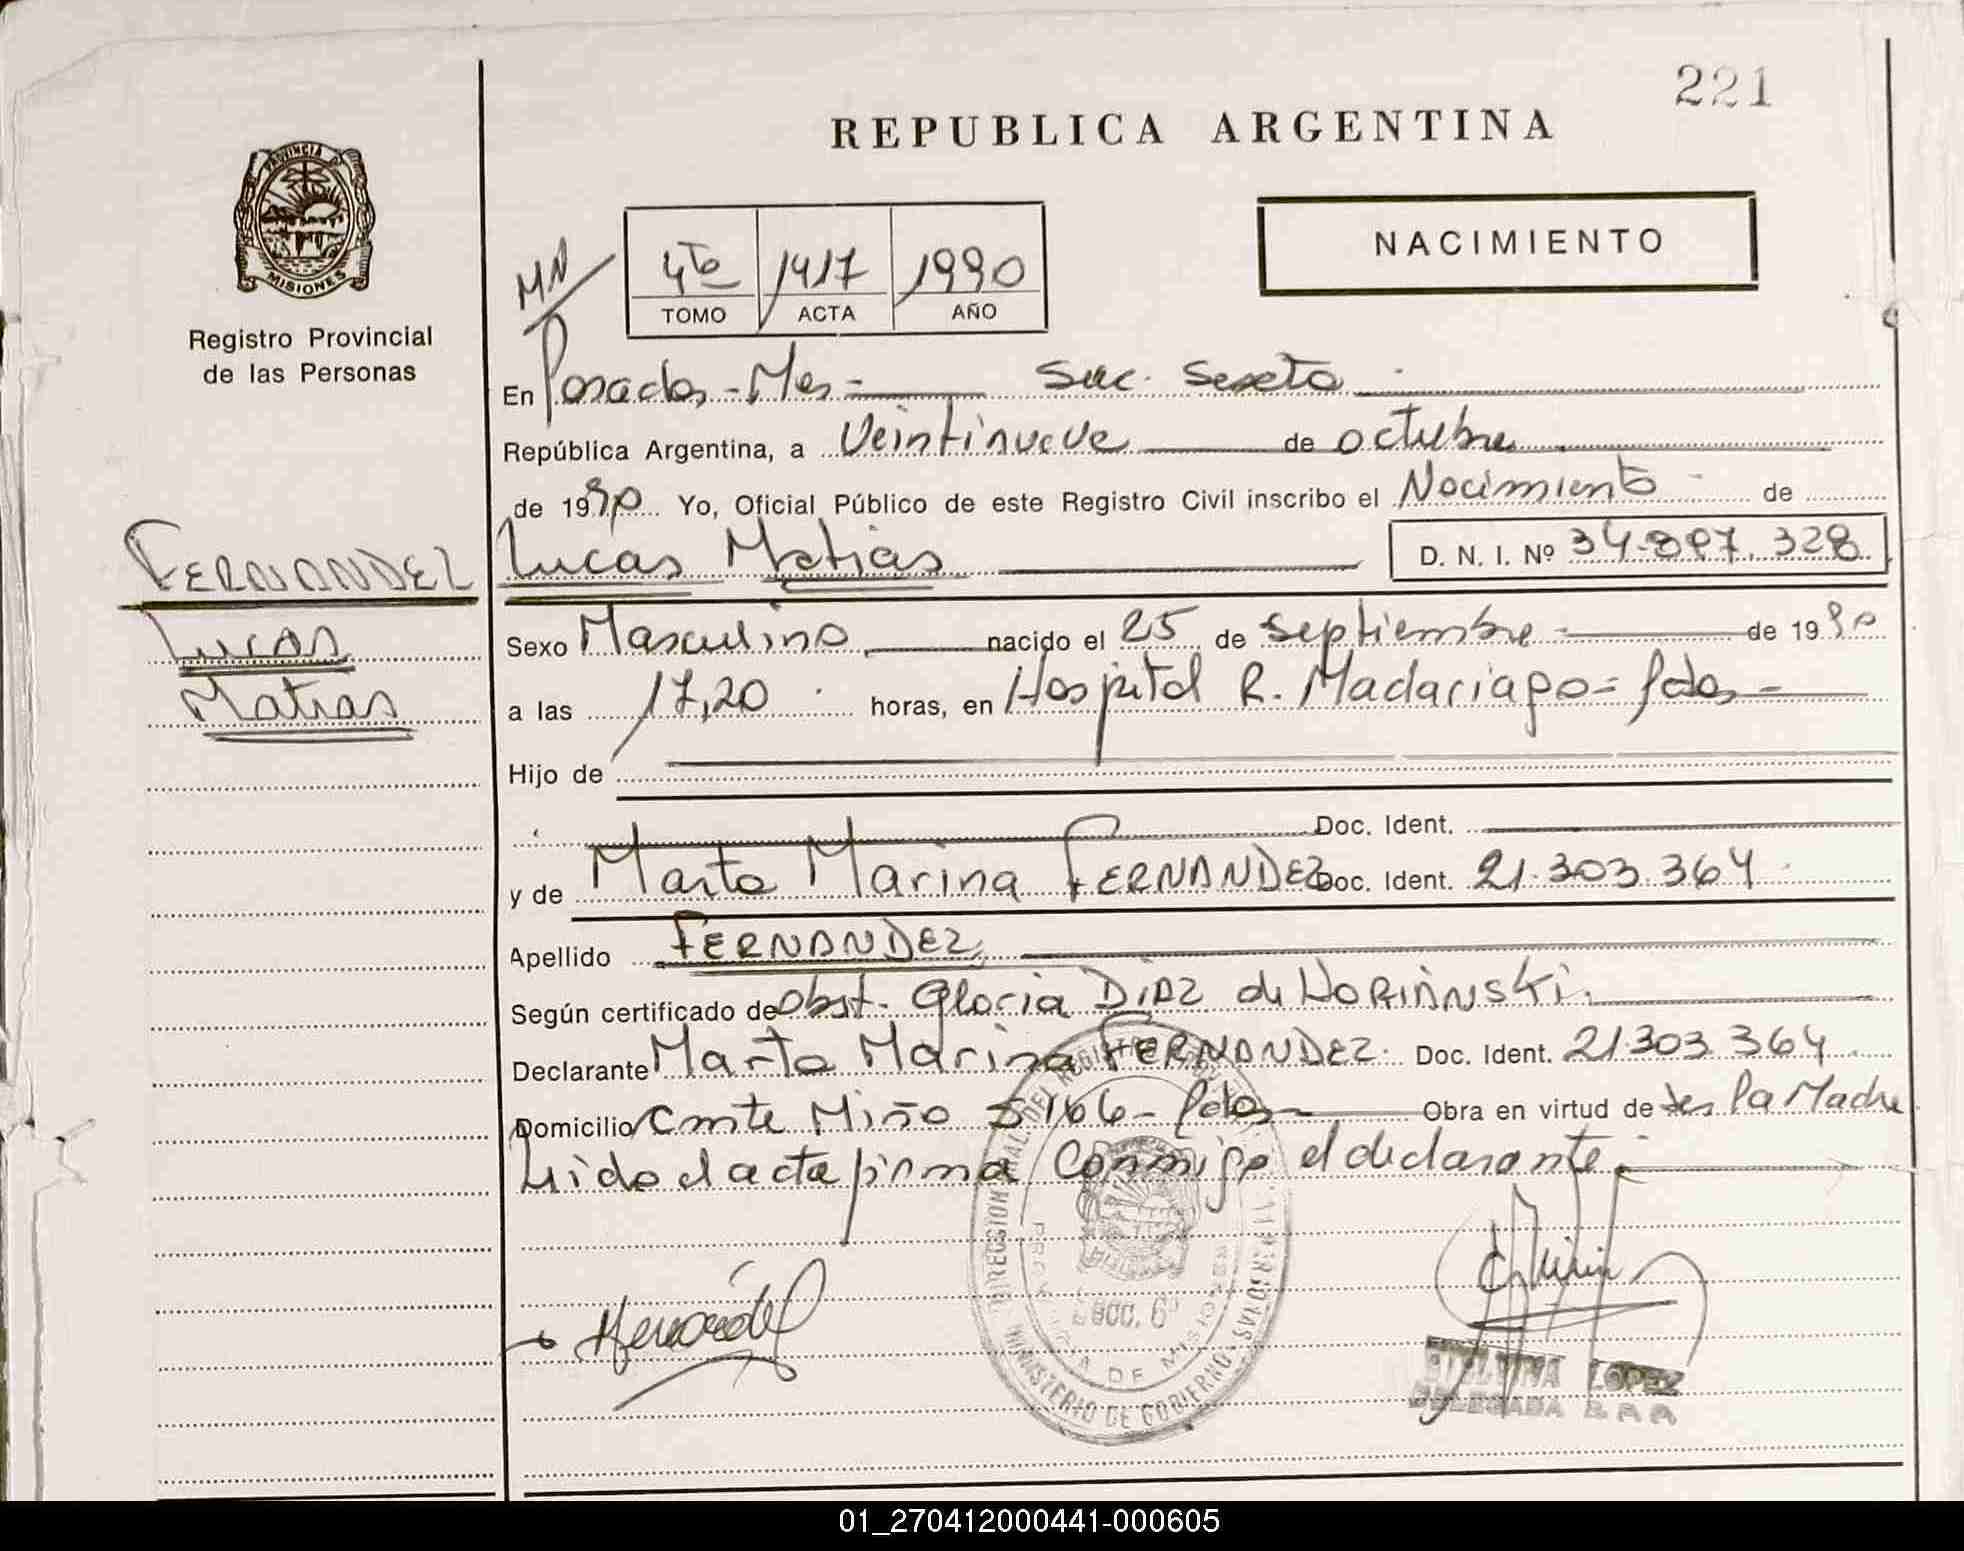 221
REPUBLICA ARGENTINA
NACIMIENTO
PROVINCIA D MISIONES
Registro Provincial
de las Personas
MN
4to 1417 1990
TOMO ACTA AÑO
En Posadas - Mes - Suc. Sexta
República Argentina, a Veintinueve de octubre
de 1990 Yo, Oficial Público de este Registro Civil inscribo el Nacimiento de
FERNANDEZ
Lucas
Matias
Lucas Matias D. N. I. Nº 34.897.328
Sexo Masculino nacido el 25 de septiembre de 1990
a las 17,20 horas, en Hospital R. Madariaga = Pdas -
Hijo de
Doc. Ident.
y de Marta Marina FERNANDEZ Doc. Ident. 21.303.364
Apellido FERNANDEZ
Según certificado de Obst. Gloria DIAZ de
Declarante Marta Marina FERNANDEZ Doc. Ident. 21.303.364
Domicilio Cmte Miño 5166 - Pdas - Obra en virtud de ser la Madre
Leido el acta firma Conmigo el declarante
DIRECCION GRAL. DEL REGISTRO PERSONAS
PROVINCIA DE MISIONES
MINISTERIO DE GOBIERNO
SUC. 6ª
LOPEZ
DELEGADA
01_270412000441-000605